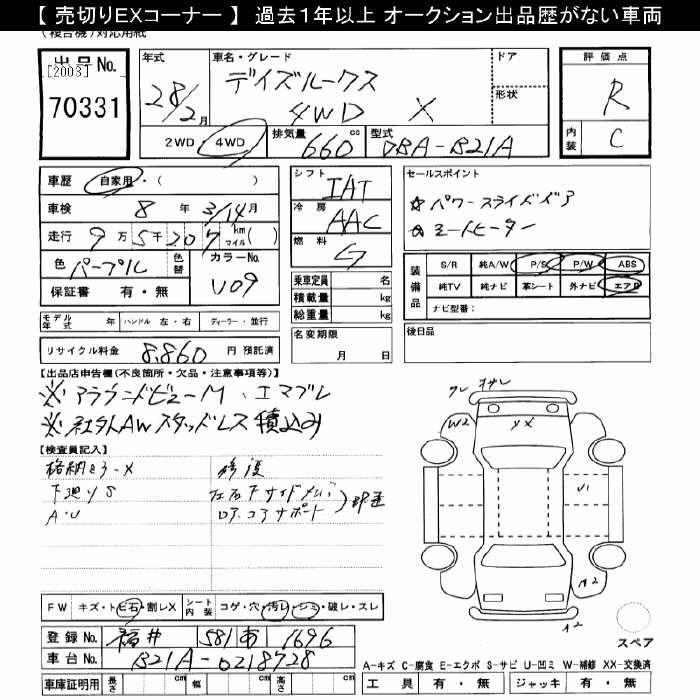 【 売切りEXコーナー 】 過去１年以上 オークション出品歴がない車両
(複合機)対応用紙
出品No.
[2003]
70331
年式
28/2月
車名・グレード
デイズルークス
4WD X
ドア
形状
評価点
R
内装
C
2WD・4WD
排気量 660 cc
型式 DBA-B21A
車歴 自家用・( )
車検 8 年 3/14月
走行 9万5千207 km マイル( )
色 パープル
色替
カラーNo. V09
保証書 有・無
シフト IAT
冷房 AAC
燃料 G
乗車定員 名
積載量 kg
総重量 kg
セールスポイント
☆パワースライドドア
☆シートヒーター
装備品
S/R 純A/W P/S P/W ABS
純TV 純ナビ 革シート 外ナビ エアB
ナビ型番( )
モデル年式 年 ハンドル 左・右 ディーラー・並行
名変期限
月 日
後日品
リサイクル料金 8,860 円 預託済
【出品店申告欄(不良箇所・欠品・注意事項等)】
※アラウンドビューM、エマブレ
※社外AWスタッドレス積込み
【検査員記入】
格納ミラーX
下廻りS
A・U
修復
左右下サイドメンバ
ロア、コアサポート
W2
XX
U1
A2
A2
FW キズ・トビ石・割レX
シート内装 コゲ・穴・汚レ・シミ・破レ・スレ
登録No. 福井 581 あ 1696
車台No. B21A-0218728
スペア
A-キズ C-腐食 E-エクボ S-サビ U-凹ミ W-補修 XX-交換済
車庫証明用 長さ cm 幅 cm 高さ cm
工具 有・無 ジャッキ 有・無